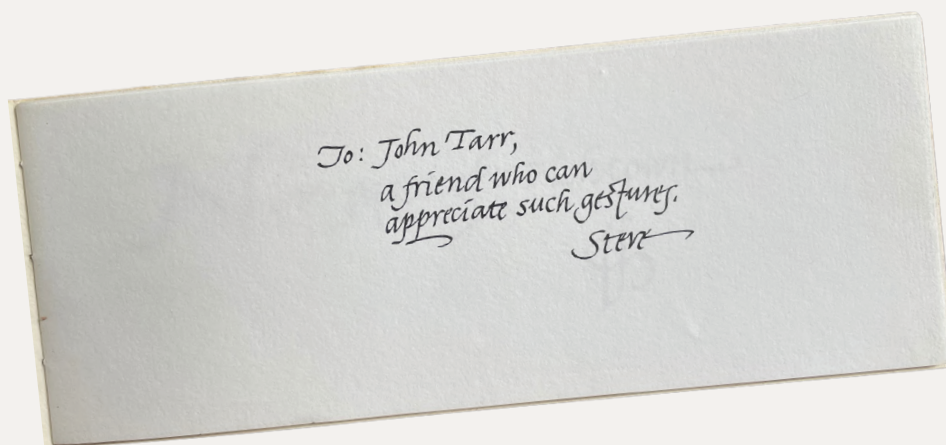 To: John Tarr,
a friend who can
appreciate such gestures.
Steve